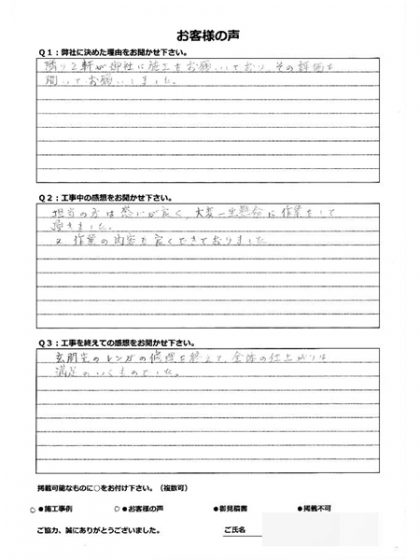 お客様の声
Q1：弊社に決めた理由をお聞かせ下さい。
隣り2軒が御社に施工をお願いしており、その評価を
聞いてお願いしました。
Q2：工事中の感想をお聞かせ下さい。
担当の方は感いが良く、大変一生懸命に作業をして
頂きました。
又、作業の内容も良くできておりました。
Q3：工事を終えての感想をお聞かせ下さい。
玄関先のレンガの修理を終えて、全体の仕上がりは
満足のいくものでした。
掲載可能なものに○をお付け下さい。（複数可）
○●施工事例 ○●お客様の声 ●御見積書 ●掲載不可
ご協力、誠にありがとうございました。 ご氏名